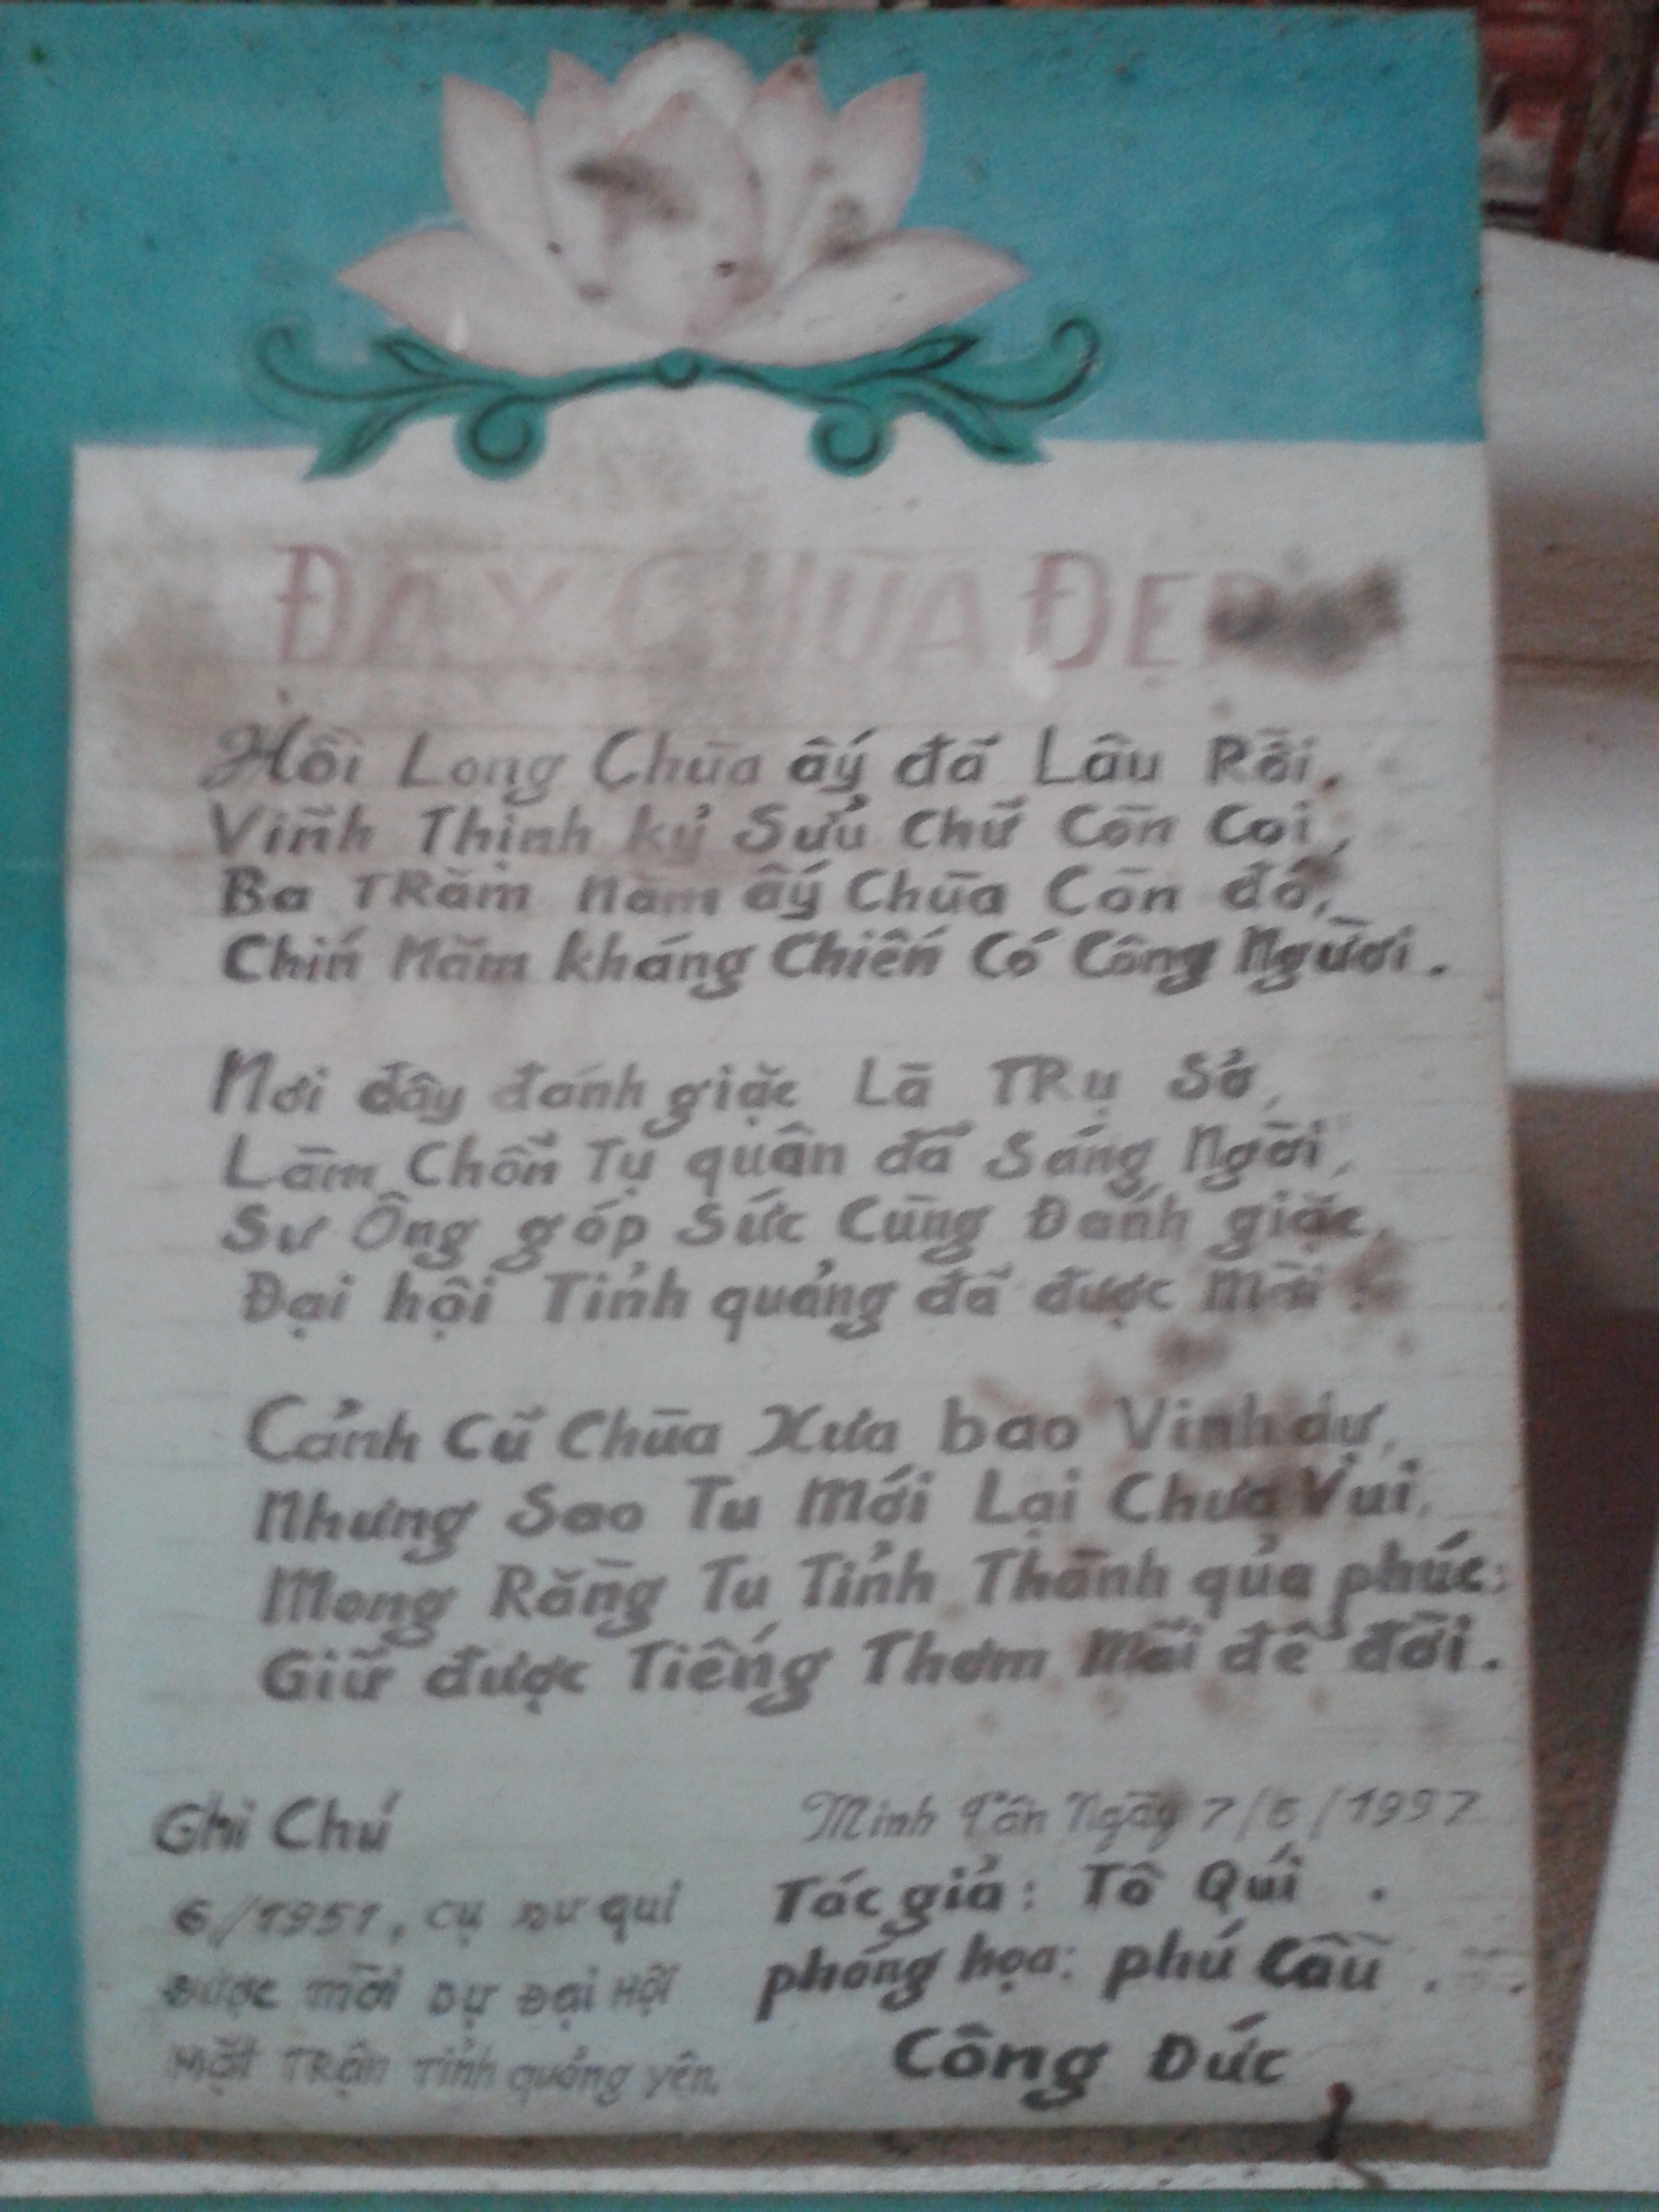 ĐÂY CHÙA ĐẸP
Hồi Long Chùa ấy đã Lâu Rồi,
Vĩnh Thịnh kỷ Sửu Chữ Còn Coi,
Ba TRăm Năm ấy Chùa Còn đó,
Chín Năm kháng Chiến Có Công Người.
Nơi đây đánh giặc Là TRụ Sở,
Làm Chốn Tụ quân đã Sáng Ngời,
Sư Ông góp Sức Cùng Đánh giặc,
Đại hội Tỉnh quảng đã được Mời
Cảnh Cũ Chùa Xưa bao Vinh dự,
Nhưng Sao Tu Mới Lại Chưa Vui,
Mong Rằng Tu Tỉnh Thành qủa phúc;
Giữ được Tiếng Thơm Mãi để đời.
Ghi Chú
6/1951, cụ sư qui
Được mời Dự Đại Hội
Mặt TRận Tỉnh quảng yên.
Minh Tân Ngày 7/6/1997
Tác giả: Tô Qúi.
phóng họa: phú Cầu.
Công Đức